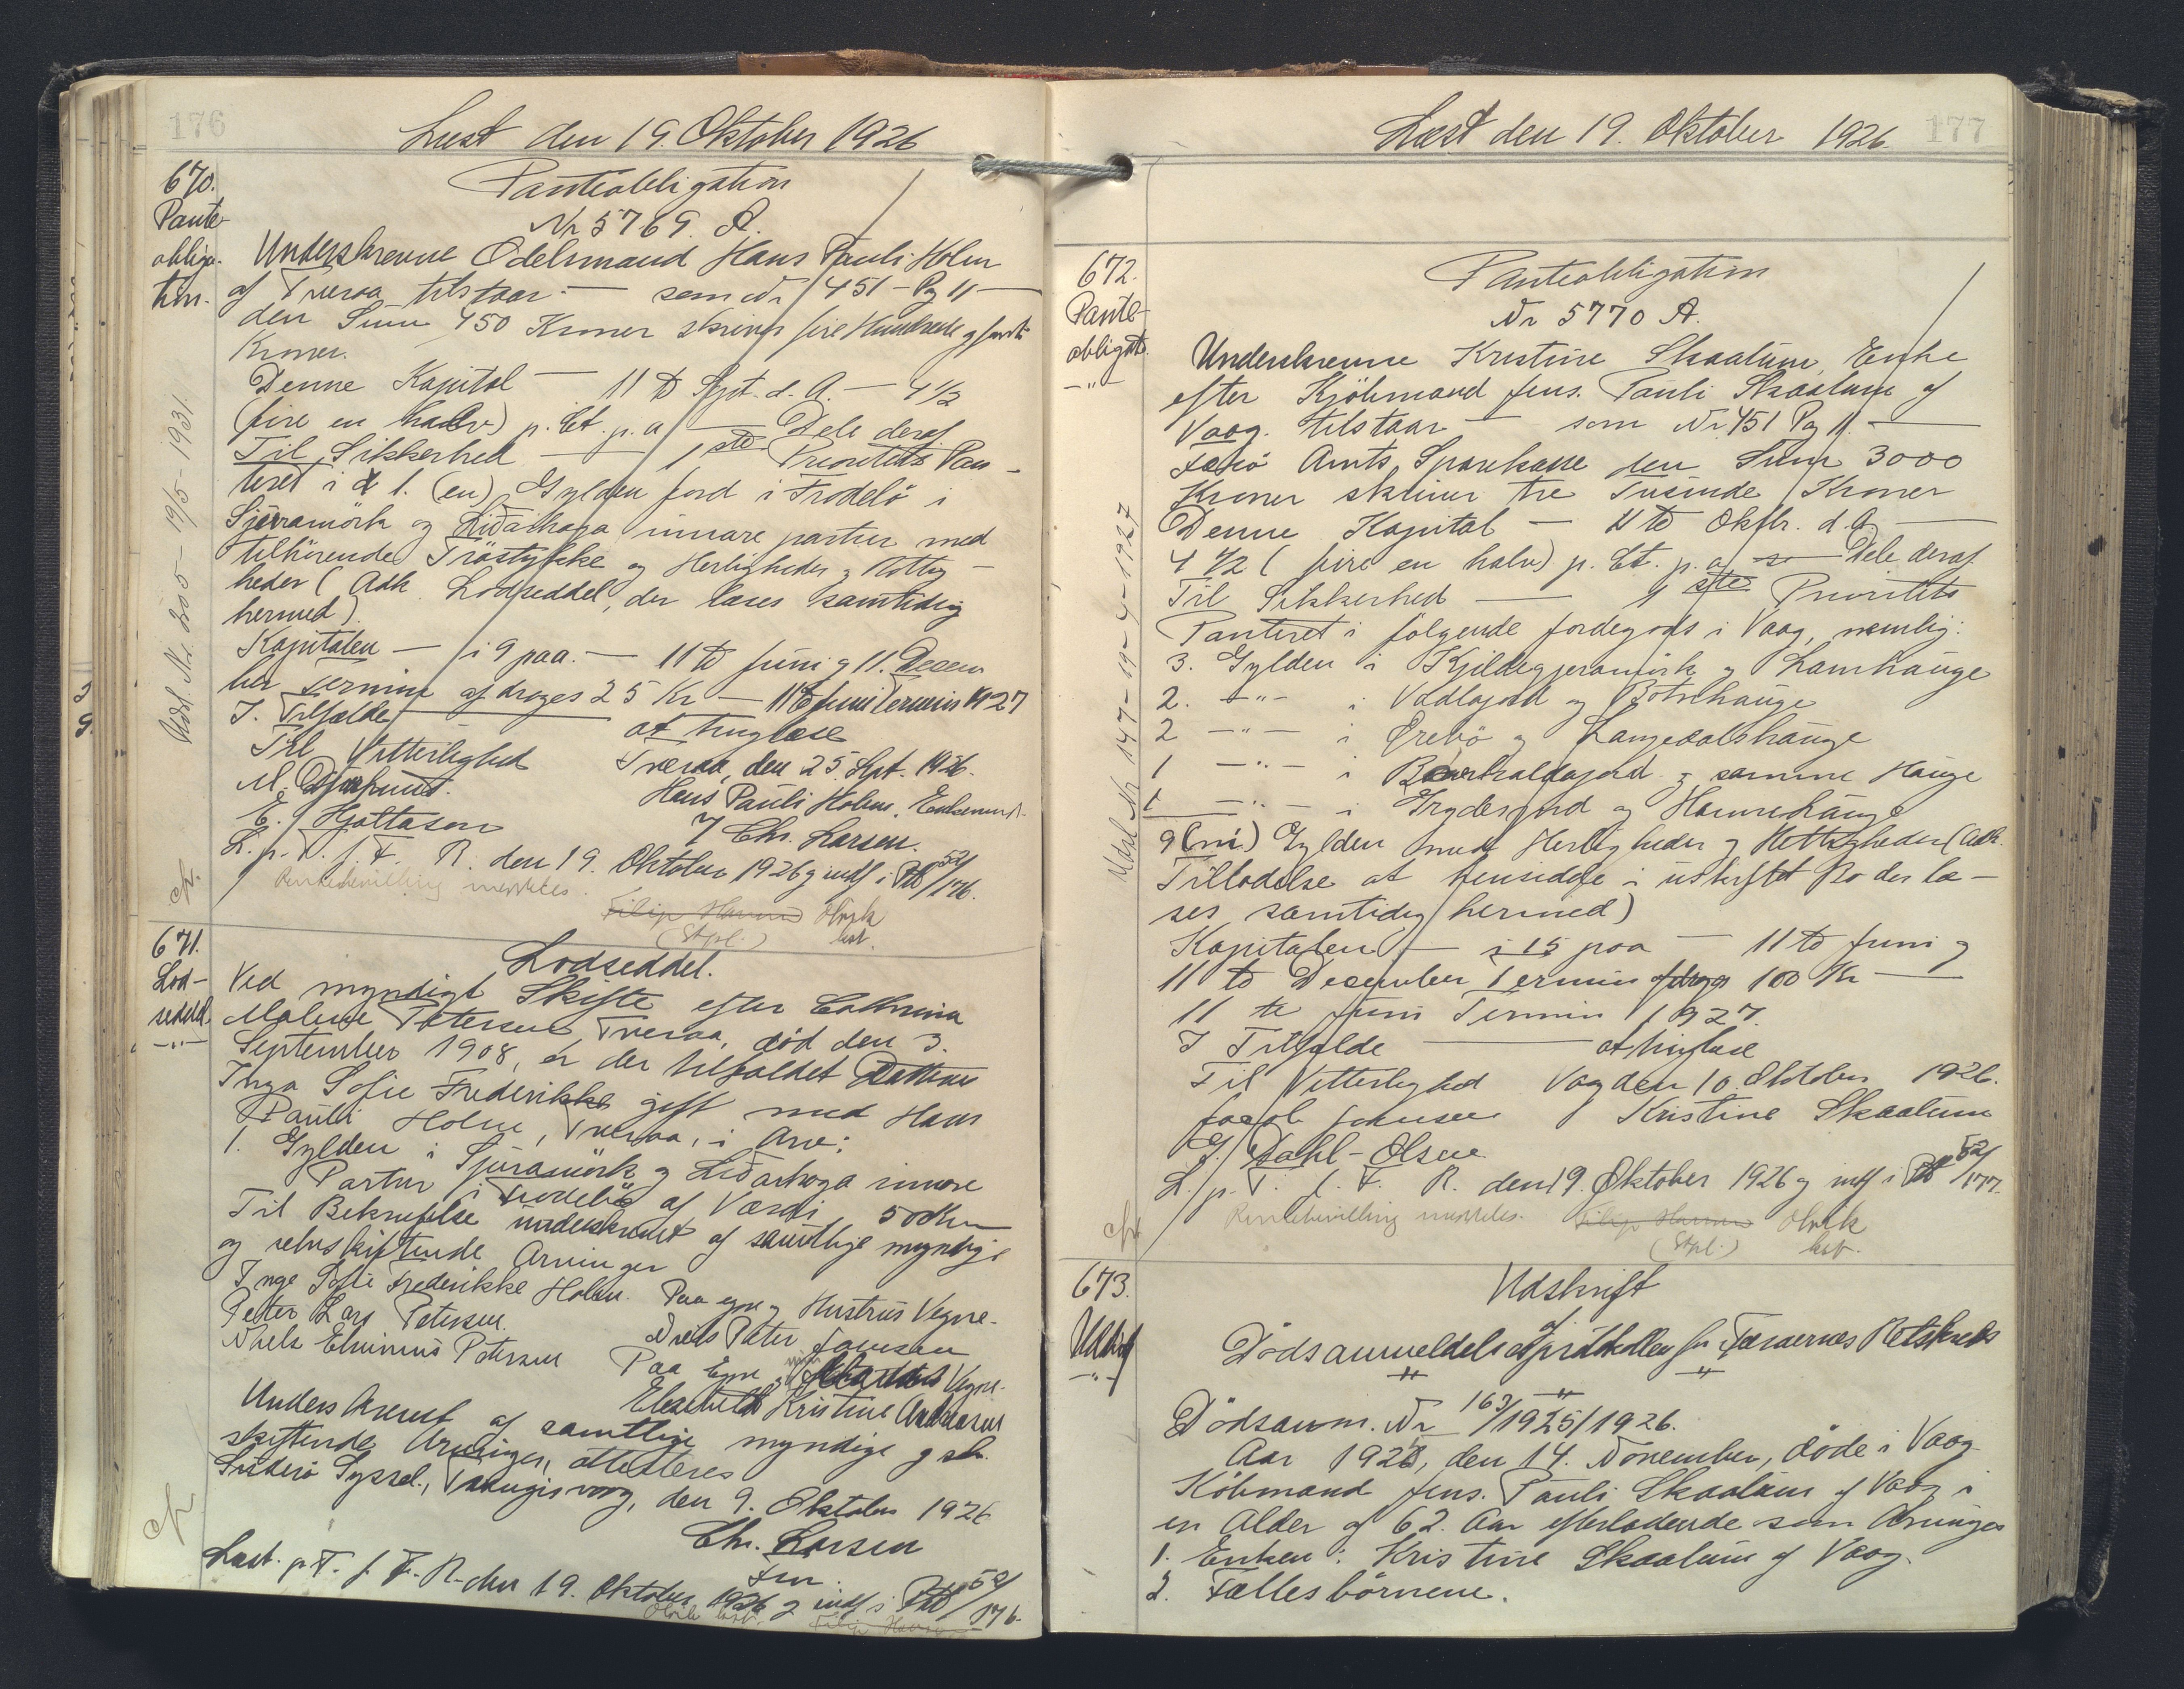 176
Læst den 19. Oktober 1926
670.
Pante-
obliga-
tion.
Panteobligation
Nr 5769. A.
Underskrevne Odelsmand Hans Pauli Holm
af Tveraa tilstaar — som Nr 451 - Pg 11 —
den Sum 450 Kroner skriver fire Hundrede og femti
Kroner.
Denne Kapital — 11 te Spt. d. A. — 4 1/2
(fire en halv) p. Ct. p. a — Dele deraf
Til Sikkerhed — 1 ste Prioritets Pan-
teret i 1. (en) Gylden Jord i Frodebö i
Sjúramörk og Lidarhaga innare partur med
tilhörende Tröstykke og Herligheder og Rettig-
heder (Adk. Lodseddel, der læses samtidig
hermed)
Kapitalen — i 9 paa. — 11 te Juni og 11. Decem
ber Termin afdrages 25 Kr — 11 te Juni Termin 1927
I. Tilfælde — at tinglæse
Til Vitterlighed Tveraa, den 25. Spt. 1926.
M. Djurhuus. Hans Pauli Holm,
E. Hjaltason / Chr. Larsen.
L. p. T. f. F. R. den 19. Oktober 1926 og indf i Ptb 52/176.
Rentebevilling mangledes.
Filip Hammer Olrik
(Stpl.) kst.
Udsl. Nr. 205 - 19/5 - 1931.
671.
Lod-
seddel
-"-
Lodseddel.
Ved myndigt Skifte efter Cathrina
Malene Petersen Tveraa, död den 3.
September 1908, er der tilfaldet Datteren
Inga Sofie Frederikke gift med Hans
Pauli Holm, Tveraa, i Arv:
1. Gylden i Sjúramörk og Lidarhaga innare
Partur i Frodebö af Værdi 50 Krn
Til Bekræftelse underskrevet af samtlige myndige
og selvskiftende Arvinger
Inga Sofie Frederikke Holm. Paa egne og Hustrus Vegne.
Peter Lars Petersen. Niels Peter Joensen
Niels Elvinius Petersen Paa Egne og Vegne.
Elisabeth Kristine Andreasen
Underskrevet af samtlige myndige og selv-
skiftende Arvinger, attesteres
Suderö Syssel, Trangisvaag, den 9. Oktober 1926
Chr. Larsen
Fm.
Læst. p. T. f. F. R. den 19. Oktober 1926 og indf i Ptb 52/176.
Olrik kst. Filip Hammer
177
Læst den 19. Oktober 1926.
672.
Pante-
obligat.
-"-
Panteobligation
Nr 5770 A.
Underskrevne Kristine Skaalum, Enke
efter Kjöbmand Jens. Pauli Skaalum af
Vaag. tilstaar — som Nr 451 Pg 11. —
Færö Amts Sparekasse den Sum 3000
Kroner skriver tre Tusinde Kroner
Denne Kapital — 11 te Oktbr. d. A —
4 1/2 (fire en halv) p. Ct. p. a — Dele deraf
Til Sikkerhed — 1 ste Prioritets
Panteret i fölgende Jordegods i Vaag, nemlig:
3. Gylden i Kjildegjeramörk og Lamhauge
2. -"- i Vadlagord og Botnhauge
2 -"- i Örebö og Langedalshauge
1 -"- i og samme Hauge
1 -"- i Grydesjord og Hamrehauge
9 (ni) Gylden med Herligheder og Rettigheder (Adk.
Tilladelse at hensidde i uskiftet Bo der læ-
ses samtidig hermed)
Kapitalen — i 15 paa — 11 te Juni og
11 te December Termin afdrages 100 Kr —
11 te Juni Termin 1927.
I Tilfælde — at tinglæse
Til Vitterlighed Vaag den 10. Oktober 1926.
Jacob Joensen Kristine Skaalum
G. Dahl-Olsen
L. p. T. f. F. R. den 19. Oktober 1926 og indf i Ptb 52/177.
Rentebevilling mangledes. Filip Hammer Olrik
(Stpl.) kst.
Udsl. Nr 147 - 19 - 4 - 1927
673.
Udskrift
-"-
Udskrift
af
Dödsanmeldelsesprotokollen for Færøernes Retskreds
Dödsanm. Nr 163/1925/1926.
Aar 1926, den 14. November, döde i Vaag
Köbmand Jens. Pauli Skaalum af Vaag i
en Alder af 62. Aar efterladende som Arvinger
1. Enken: Kristine Skaalum af Vaag.
2. Fællesbörnene.